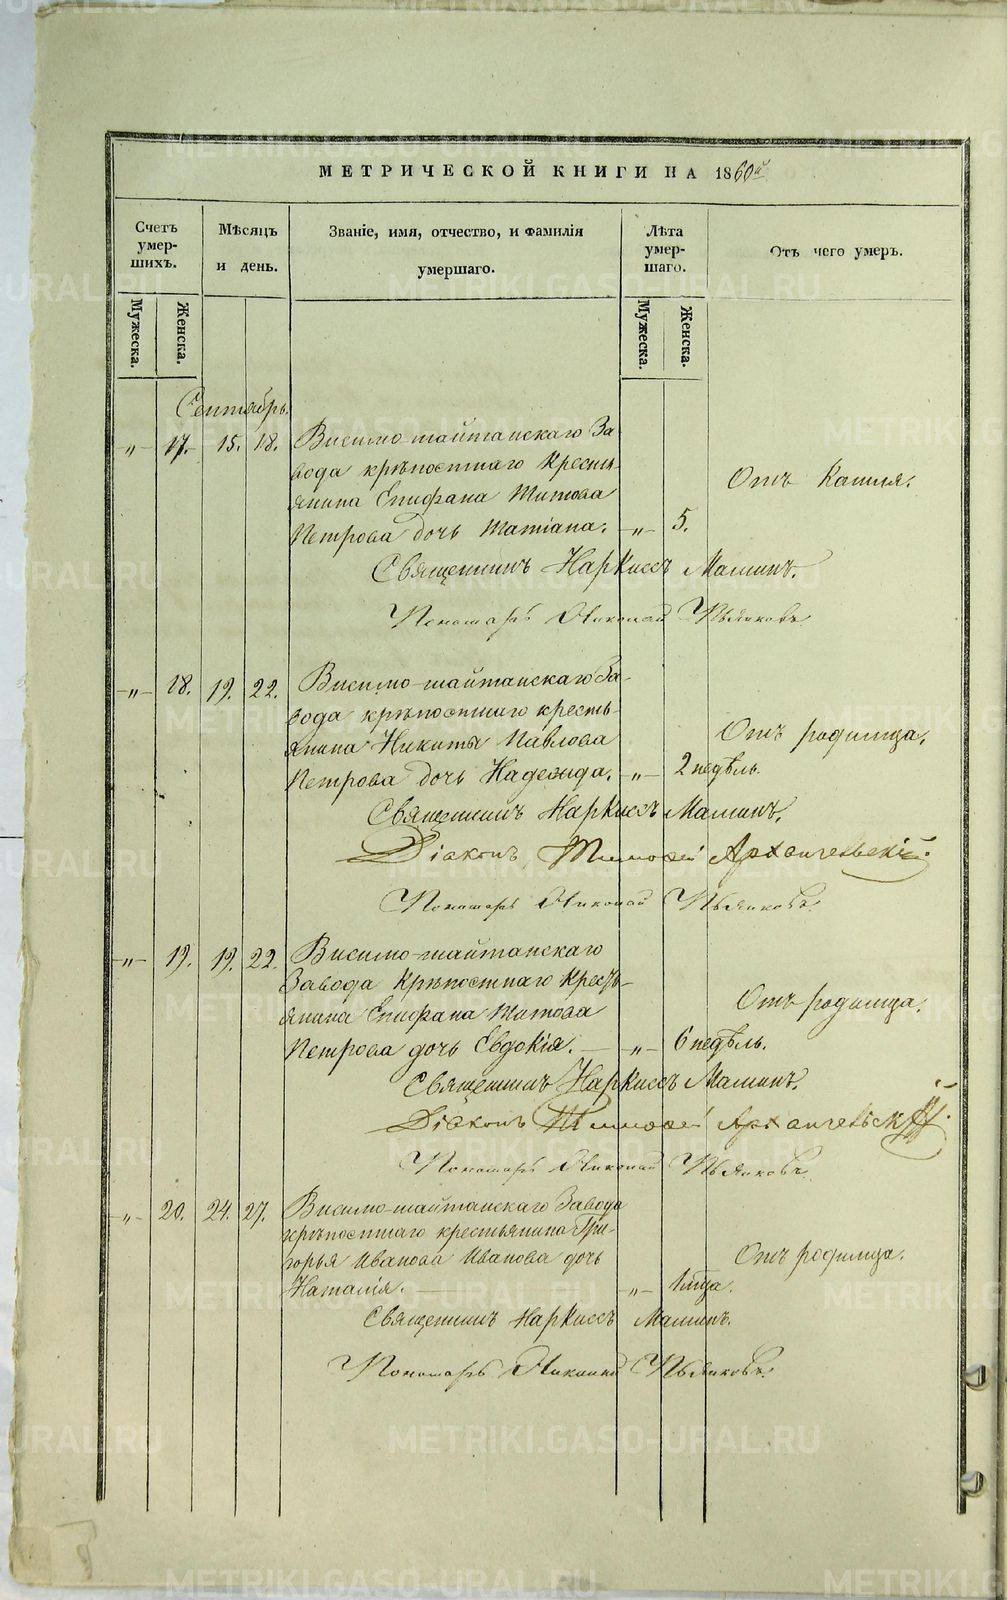 МЕТРИЧЕСКОЙ КНИГИ НА 1860й
Счетъ умер-шихъ.
Мѣсяцъ и день.
Званіе, имя, отчество, и фамилія умершаго.
Лѣта умер-шаго.
Отъ чего умеръ.
Мужеска.
Женска.
Мужеска.
Женска.
Сентябрь.
„ 17. 15. 18. Висимо-шайтанскаго За-
вода крѣпостнаго Кресть-
янина Епифана Титова
Отъ Кашля.
Петрова дочь Татіана. „ 5.
Священникъ Наркиссъ Маминъ.
Пономарь Николай
„ 18. 19. 22. Висимо-шайтанскаго За-
вода крѣпостнаго кресть-
янина Никиты Павлова
Отъ родимца.
Петрова дочь Надежда. „ 2 недѣль.
Священникъ Наркиссъ Маминъ.
Діаконъ Тимофей Архангельскій.
Пономарь Николай
„ 19. 19. 22. Висимо-шайтанскаго
Завода Крѣпостнаго Кресть-
янина Епифана Титова
Отъ родимца.
Петрова дочь Евдокія. „ 6 недѣль.
Священникъ Наркиссъ Маминъ.
Діаконъ Тимофей Архангельскій.
Пономарь Николай
„ 20. 24. 27. Висимо-шайтанскаго Завода
крѣпостнаго крестьянина Гри-
горья Иванова Иванова дочь
Отъ родимца.
Наталія. „ 1 мца.
Священникъ Наркиссъ Маминъ.
Пономарь Николай
METRIKI.GASO-URAL.RU